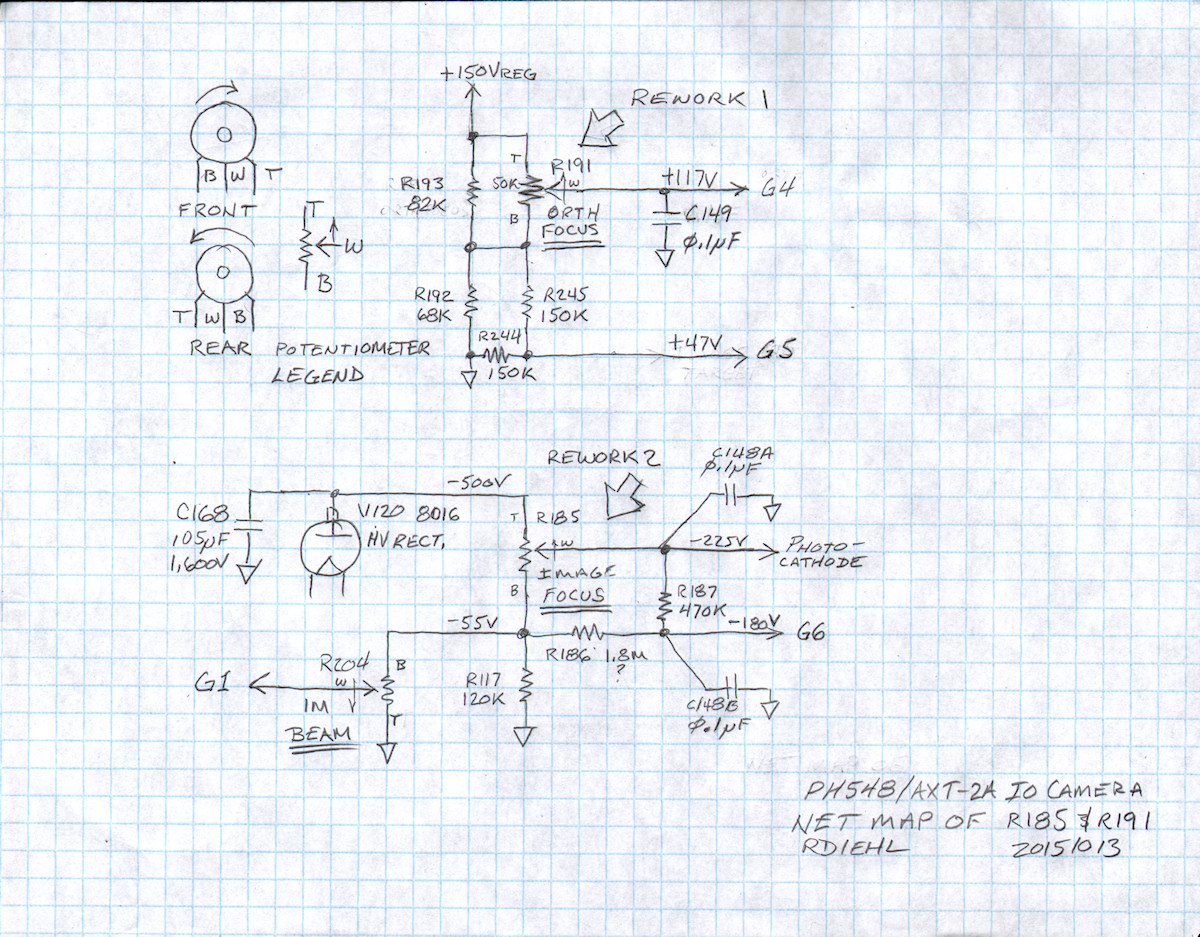 +150VREG
REWORK 1
B W T
FRONT
T
W
B
T W B
REAR
POTENTIOMETER
LEGEND
R193
82K
T
50K
B
R191
W
ORTH
FOCUS
+117V
G4
C149
0.1µF
R192
68K
R245
150K
R244
150K
+47V
G5
REWORK 2
C148A
0.1µF
-500V
C168
.05µF
1,600V
V120 8016
HV RECT.
T
R185
W
B
IMAGE
FOCUS
-225V
PHOTO-
CATHODE
R187
470K
-180V
G6
-55V
R186 1.8M
?
G1
R204
W
B
1M
T
BEAM
R117
120K
C148B
0.1µF
PH548/AXT-2A IO CAMERA
NET MAP OF R185 & R191
RDIEHL 20151013